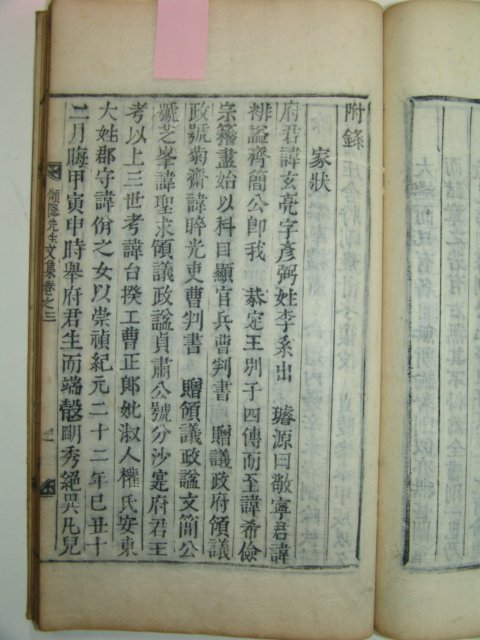 附錄
家狀
府君諱玄亮字彥弼姓李系出 璿源曰敬寧君諱
裶謚齊簡公卽我 恭定王別子四傳而至諱希儉
宗籍盡始以科目顯官兵曹判書 贈議政府領議
政號菊齋諱睟光吏曹判書 贈領議政謚文簡公
號芝峯諱聖求領議政謚貞肅公號分沙寔府君王
考以上三世考諱台揆工曹正郞妣淑人權氏安東
大姓郡守諱之女以崇禎紀元二十二年己丑十
二月晦甲寅申時擧府君生而端慤明秀絕異凡兒
先生文集卷之三 一